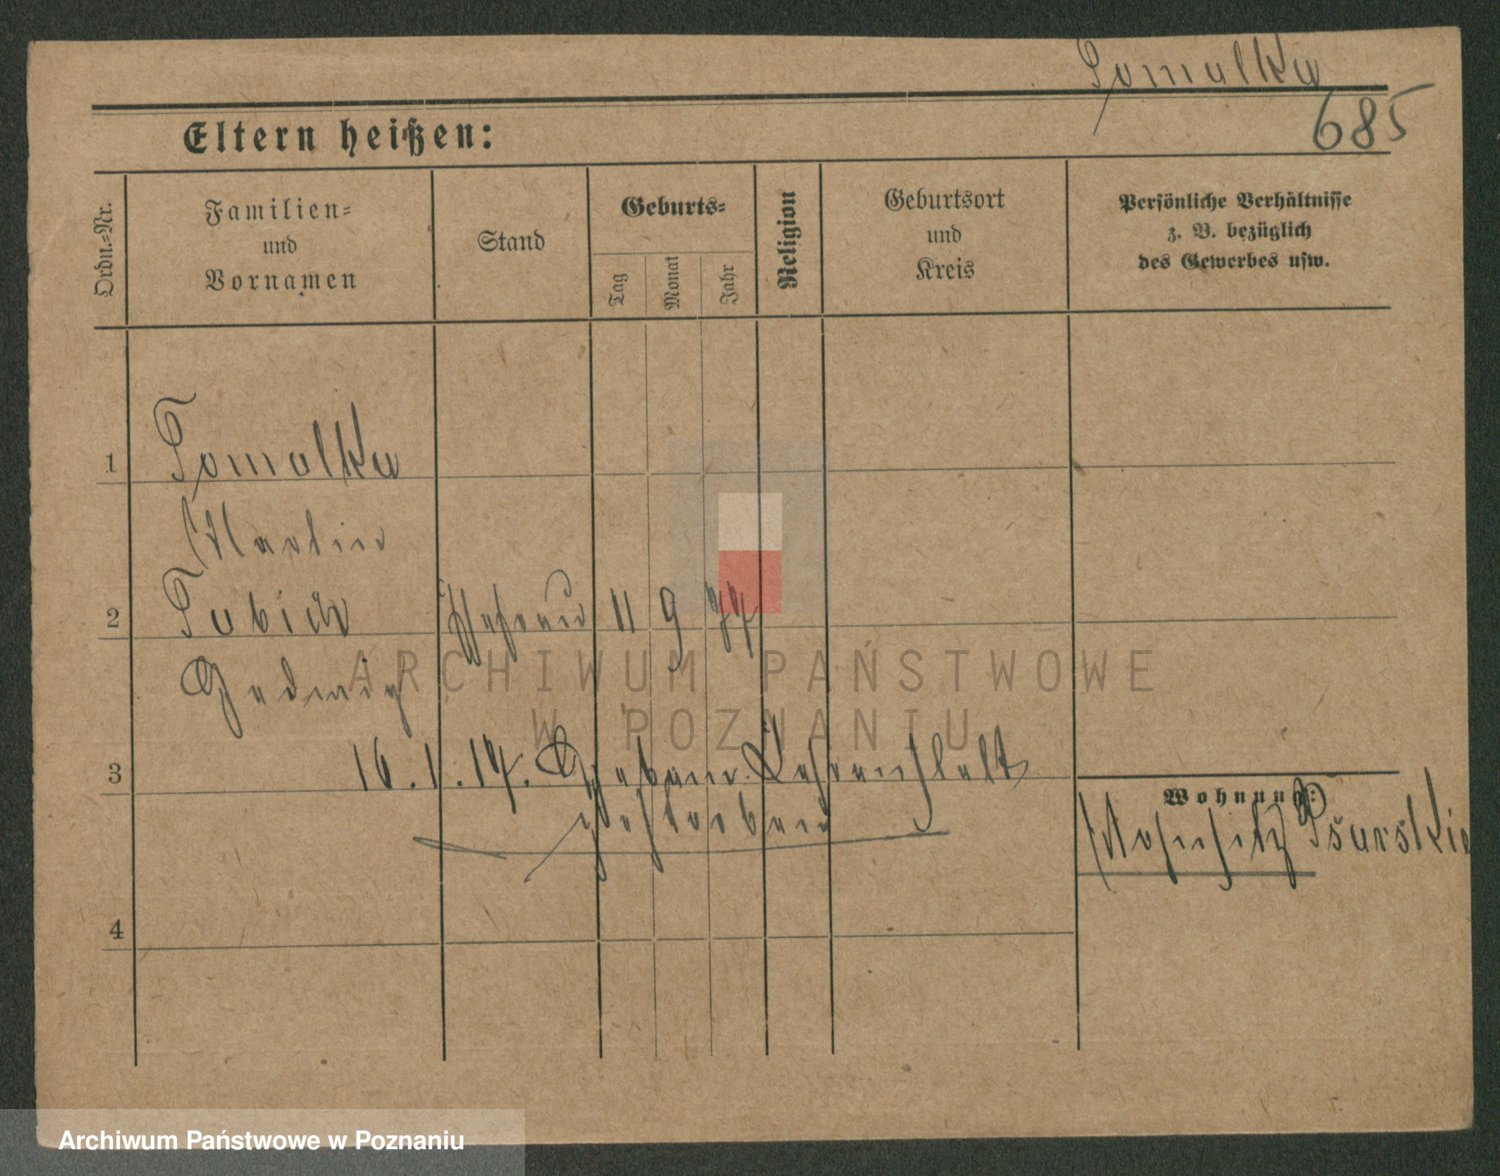 Tomalka
685
Eltern heißen:
Ordn.-Nr.
Familien-
und
Vornamen
Stand
Geburts-
Tag
Monat
Jahr
Religion
Geburtsort
und
Kreis
Persönliche Verhältnisse
z. B. bezüglich
des Gewerbes usw.
1
Tomalka
Martin
2
11 9 77
Hedwig
3
16.1.17. Hebam. Lehranstalt
gestorben
Wohnung:
4
ARCHIWUM PAŃSTWOWE
W POZNANIU
Archiwum Państwowe w Poznaniu